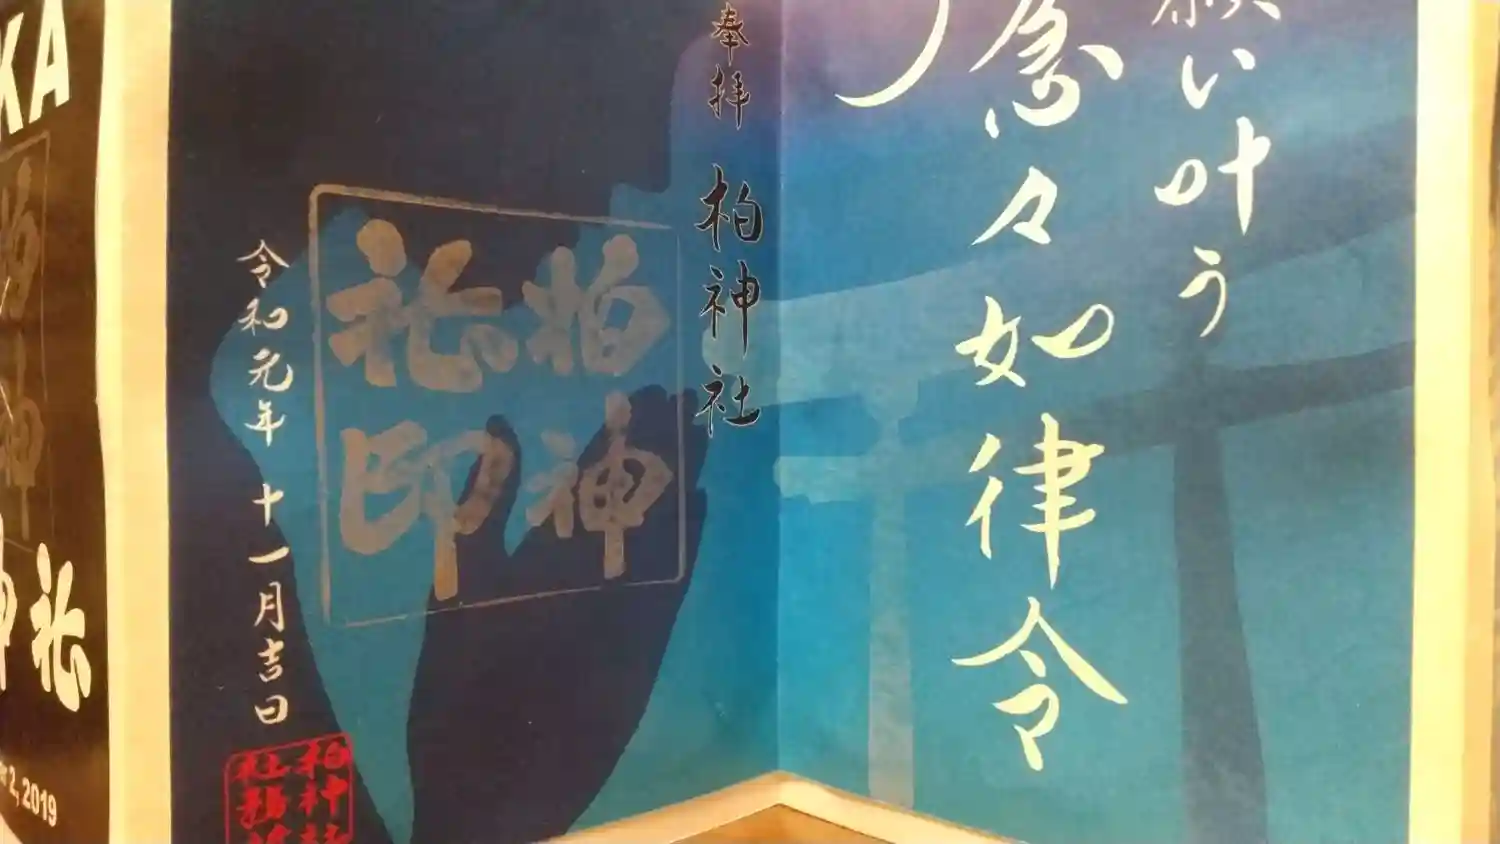 願い叶う
急々如律令
奉拝 柏神社
柏神
社印
令和元年 十一月吉日
柏神社
社務
KA
2, 2019